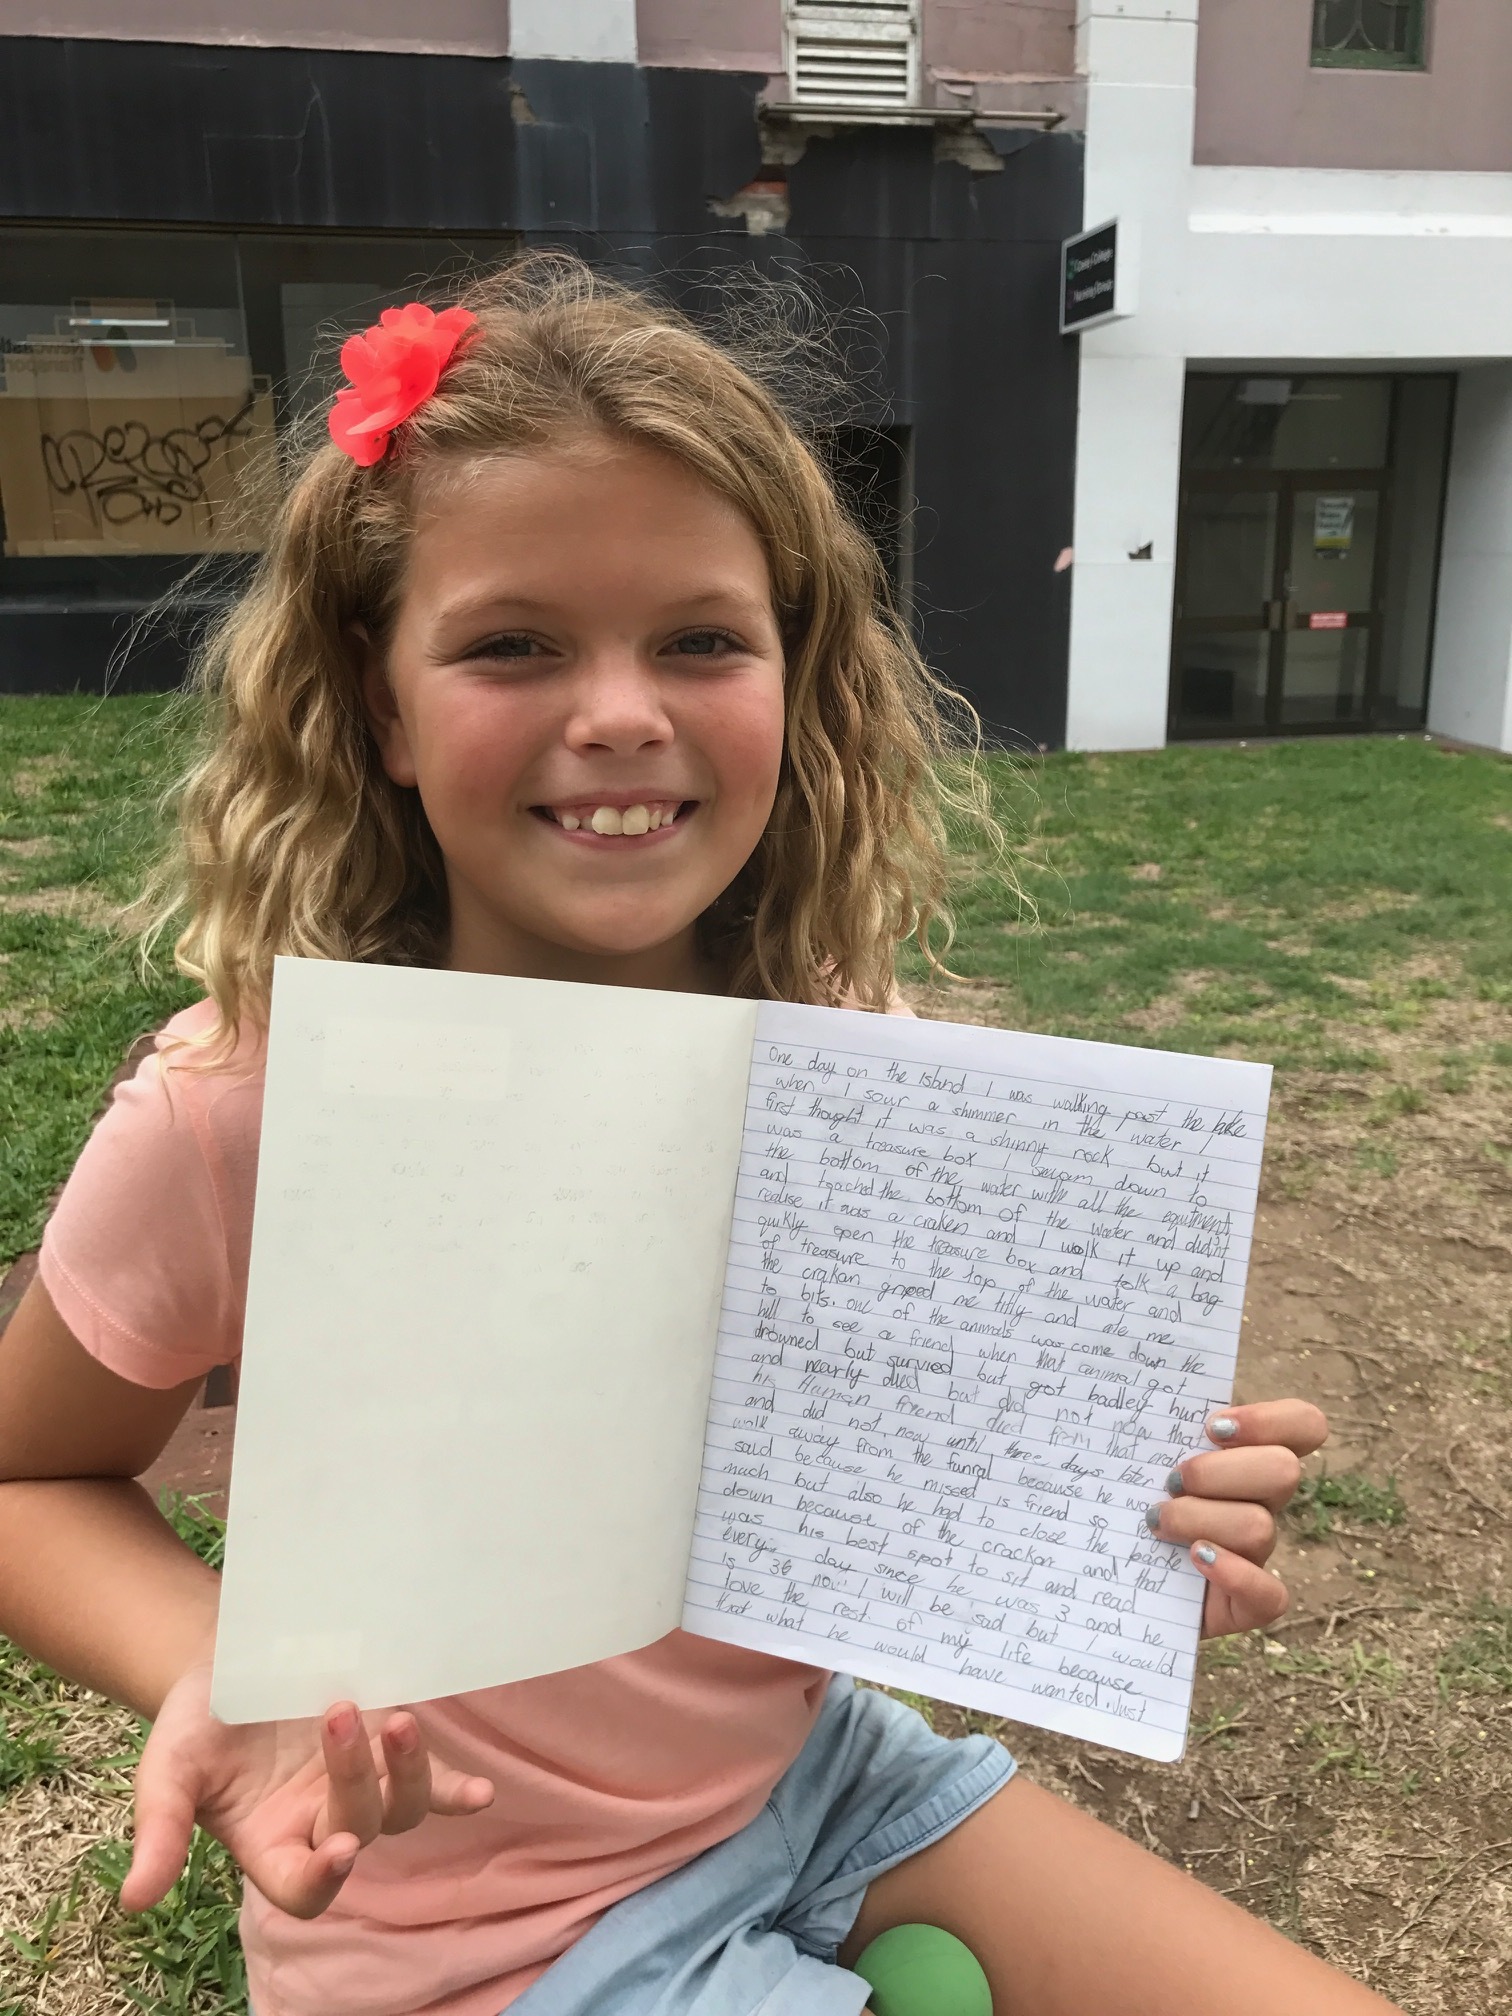 One day on the island I was walking past the lake
when I sour a shimmer in the water I
first thought it was a shinny rock but it
was a treasure box I swam down to
the bottom of the water with all the equitment
and reached the bottom of the water and didn't
realise it was a craken and I wolk it up and
quikly open the treasure box and tolk a bag
of treasure to the top of the water and
the crakan griped me titly and ate me
to bits. one of the animals was come down the
hill to see a friend when that animal got
drowned but survied but got badley hurt
and nearly died but did not now that
his Human friend died from that crak
and did not now until three days later
walk away from the funral because he was
said because he missed is friend so
much but also he had to close the parke
down because of the crackan and that
was his best spot to sit and read
every day since he was 3 and he
is 36 now I will be sad but I would
love the rest of my life because
that what he would have wanted. Just